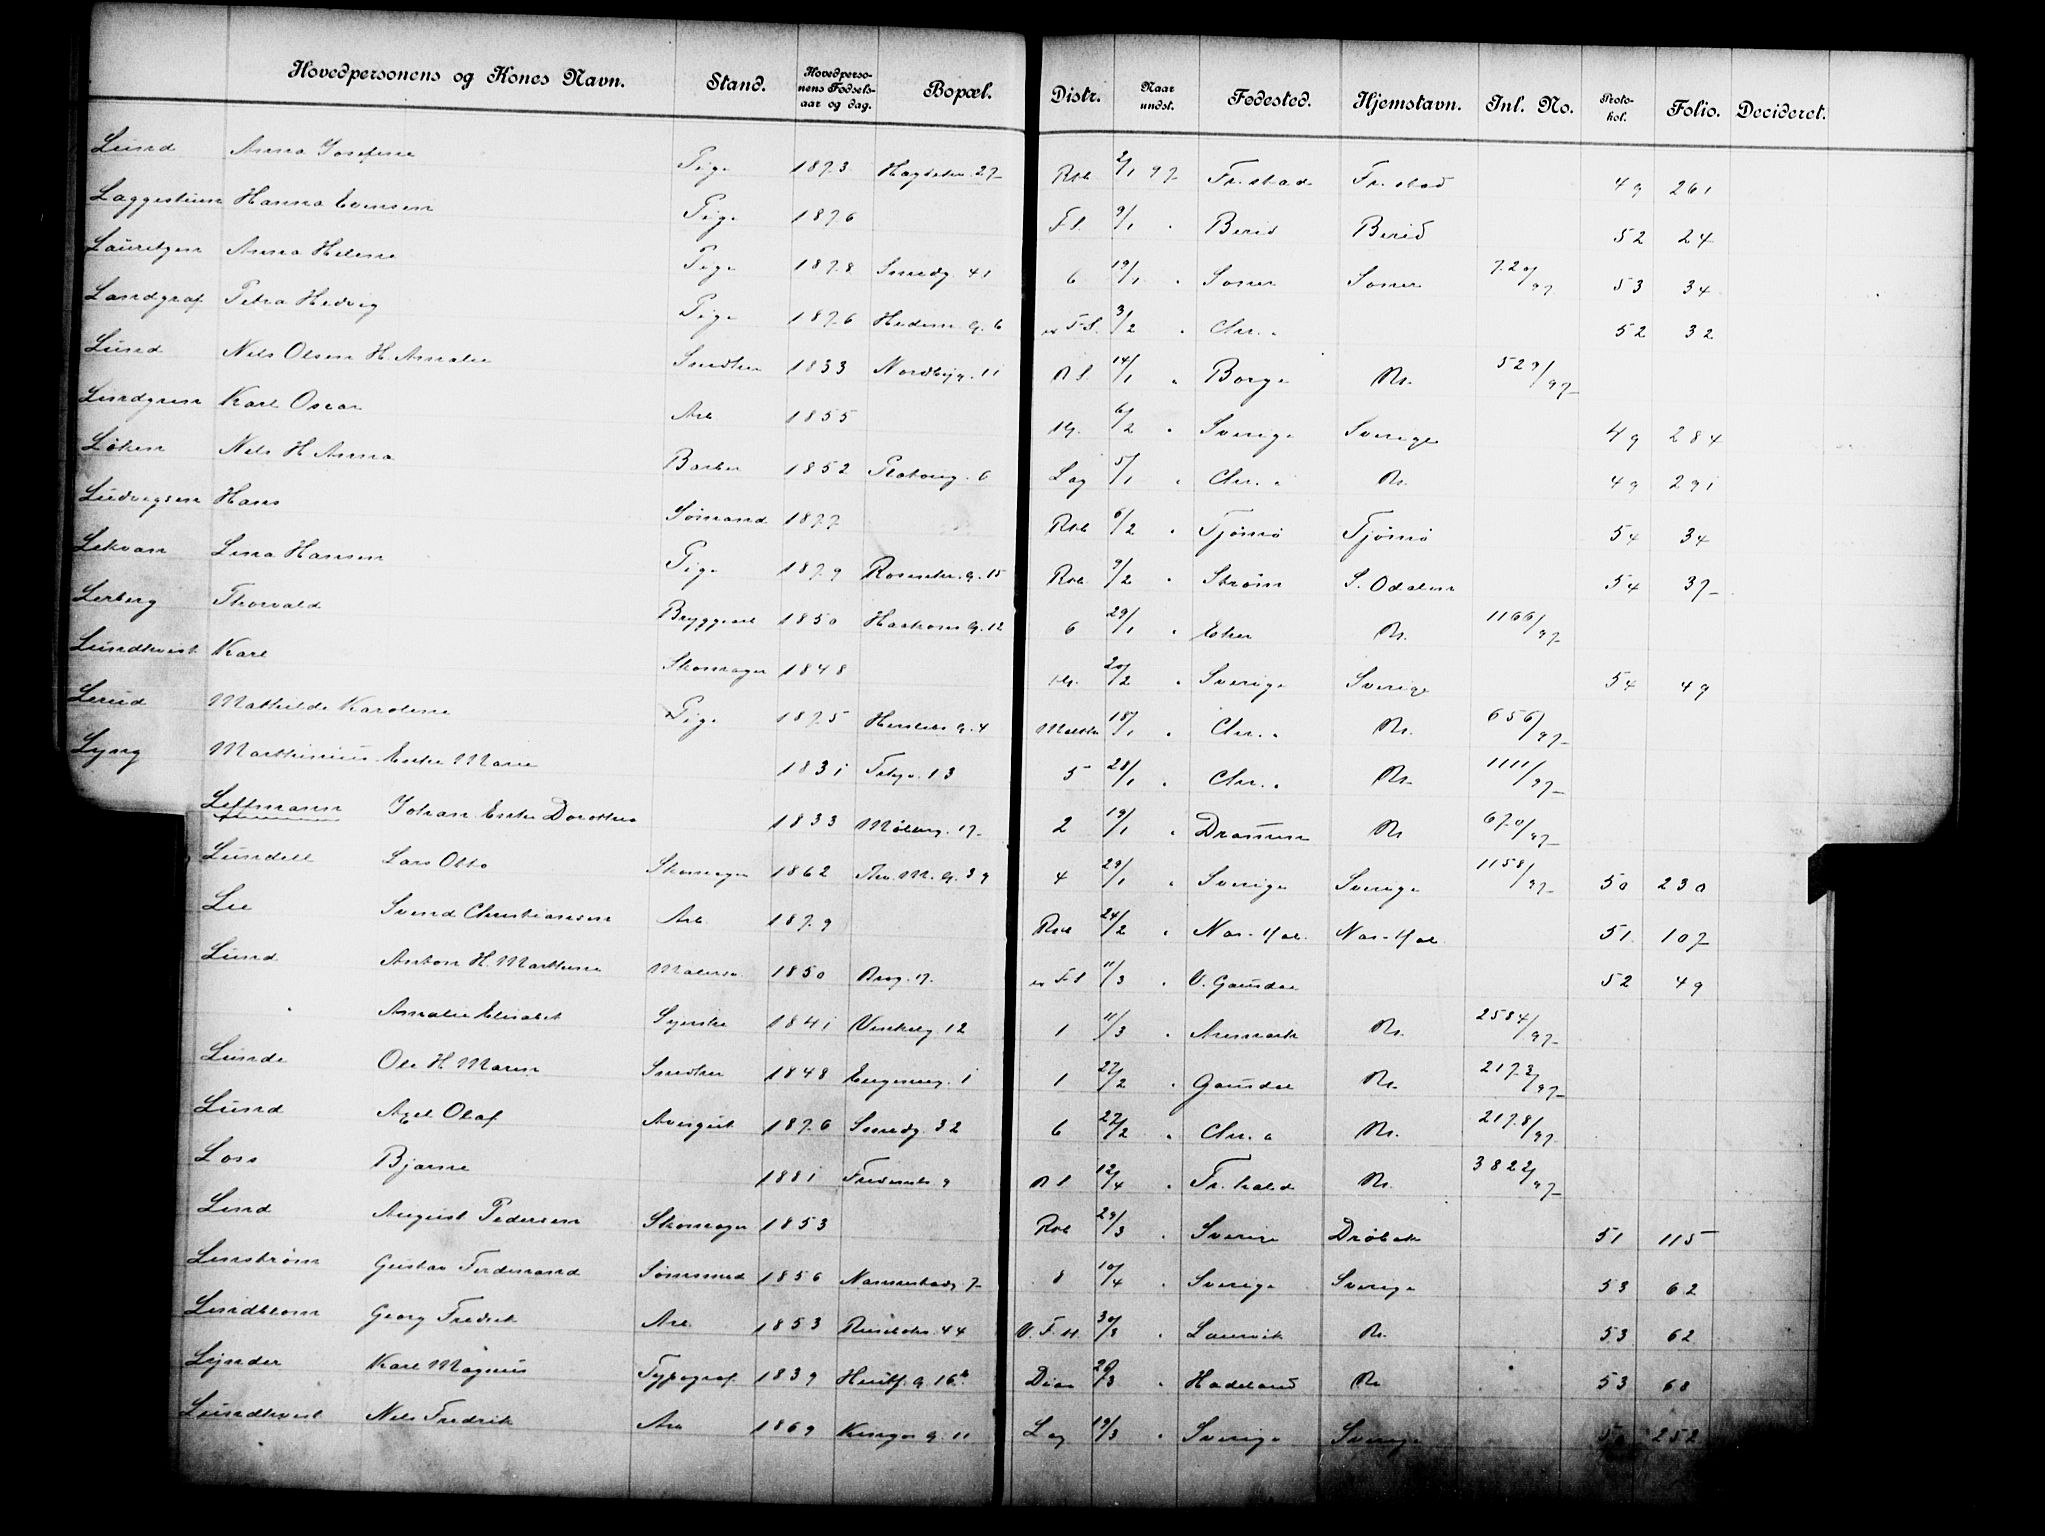 Hovedpersonens og Kones Navn. Stand. Hovedpersonens Fødselsaar og dag. Bopæl. Distr. Naar undst. Fødested. Hjemstavn. Inl. No. Protokol. Folio. Decideret.
Lund Anna Josefine Pige 1873 27 Rsb 2/1 97 Fr.stad Fr.stad 49 261
Hanna Evensen Pige 1876 F.S. 9/1 " Berid Berid 52 24
Lauritzen Anna Helene Pige 1878 Smedg. 41 6 19/1 " Soner Soner 720/97 53 34
Landgraf Petra Hedvig Pige 1876 Hedem. G. 6 F.S. 3/2 " Chr. a 52 32
Lund Nils Olsen H. Amalie Snedker 1833 Nordbyg. 11 14/1 " Borge Kr. 529/97
Lindgren Karl Oscar Arb 1855 6/2 " Sverige Sverige 49 284
Løken Nils H. Anna Barber 1852 Platoug. 6 Lag 5/1 " Chr. a Kr. 49 291
Ludvigsen Hans Sømand 1877 Rsb 6/2 " Tjømø Tjømø 54 34
Lekvan Lina Hansen Pige 1879 Rosenkr. G. 15 Rsb 9/2 " Strøm S. Odalen 54 37
Lerberg Thorvald Bryggearb 1850 12 6 29/1 " Eker Kr. 1166/97
Lundkvist Karl Skomager 1848 20/2 " Sverige Sverige 54 49
Lerud Mathilde Karoline Pige 1875 G. 4 18/1 " Chr. a Kr. 656/97
Lyng Marthinius Enke Marie 1831 13 5 28/1 " Chr. a Kr. 1111/97
Johan Enke Dorothea 1833 Møllerg. 17 2 19/1 " Drammen Kr. 670/97
Lundell Lars Otto Skomager 1862 Thv. M. G. 39 4 29/1 " Sverige Sverige 1158/97 50 230
Lie Svend Christiansen Arb. 1879 Rsb 24/2 " 51 107
Lund Anton H. Martine Malersv. 1850 17 F.S 11/3 " V. Gausdal 52 49
" Amalie Elisabet Syerske 1841 Vinkelg. 12 1 11/3 " Aremark Kr. 2584/97
Lunde Ole H. Maren Snedker 1848 Engeng. 1 1 27/2 " Gausdal Kr. 2173/97
Lund Axel Olaf Avisgut 1876 Smedg. 32 6 27/2 " Chr. a Kr. 2178/97
Loss Bjarne 1881 9 12/4 " Fr.hald Kr. 3822/97
Lind August Pedersen Skomager 1853 Rsb 29/3 " Sverige Drøbak 51 115
Linstrøm Gustav Ferdinand Sømsmed 1856 Nannestadg. 7 8 10/4 " Sverige Sverige 53 62
Lindblom Georg Fredrik Arb 1853 44 V.F.H. 30/3 " Laurvik Kr. 53 62
Lynder Karl Magnus Typograf 1839 Huitf. G. 16b Diac 26/3 " Hadeland Kr 53 68
Lundkvist Nils Fredrik Arb 1869 G. 11 Lag 19/3 " Sverige Sverige 252